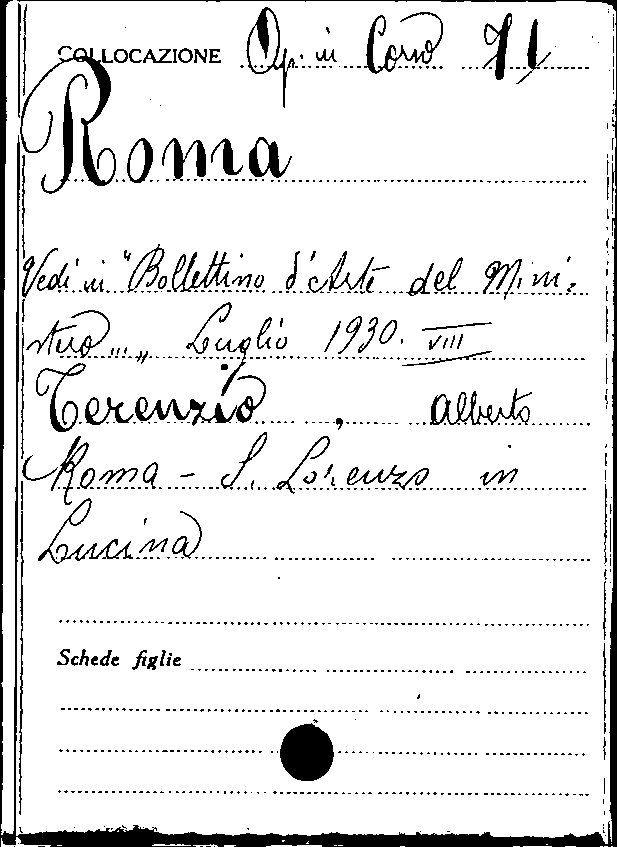 COLLOCAZIONE Op. in Corso 71
Roma
Vedi in "Bollettino d'Arte del Mini-
stero..." Luglio 1930. VIII
Terenzio, Alberto
Roma - S. Lorenzo in
Lucina
Schede figlie